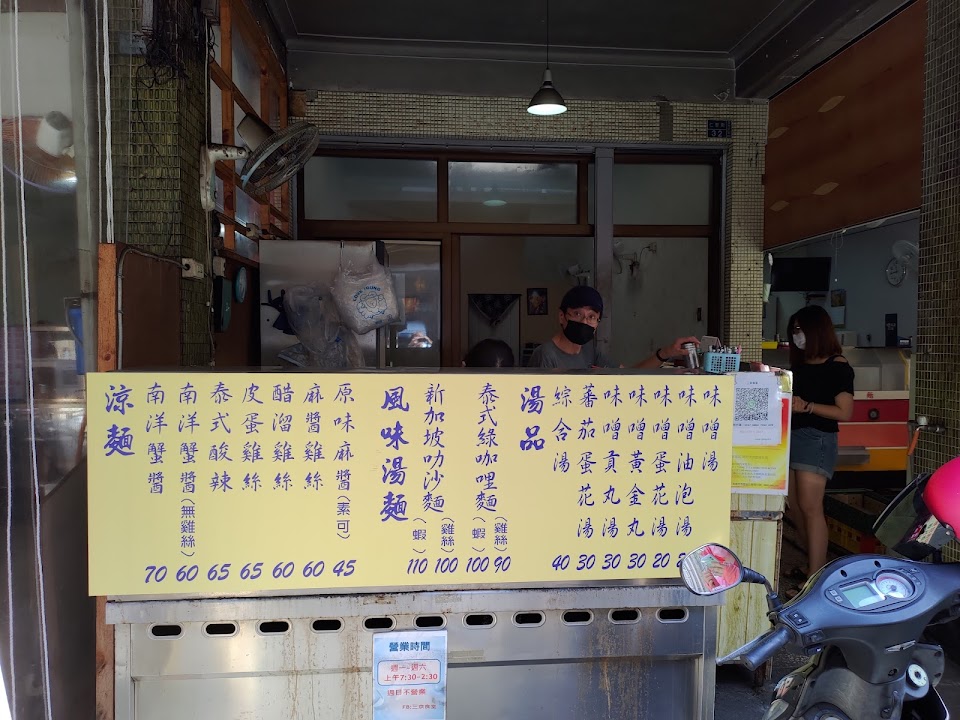 涼麵
南洋蟹醬 70
南洋蟹醬(無雞絲) 60
泰式酸辣 65
皮蛋雞絲 65
醋溜雞絲 60
麻醬雞絲 60
原味麻醬(素可) 45
風味湯麵
新加坡叻沙麵(蝦) 110 (雞絲) 100
泰式綠咖哩麵(蝦) 100 (雞絲) 90
湯品
綜合湯 40
蕃茄蛋花湯 30
味噌貢丸湯 30
味噌黃金丸 30
味噌蛋花湯 20
味噌油泡湯
味噌湯
營業時間
週一~週六
上午7:30-2:30
週日不營業